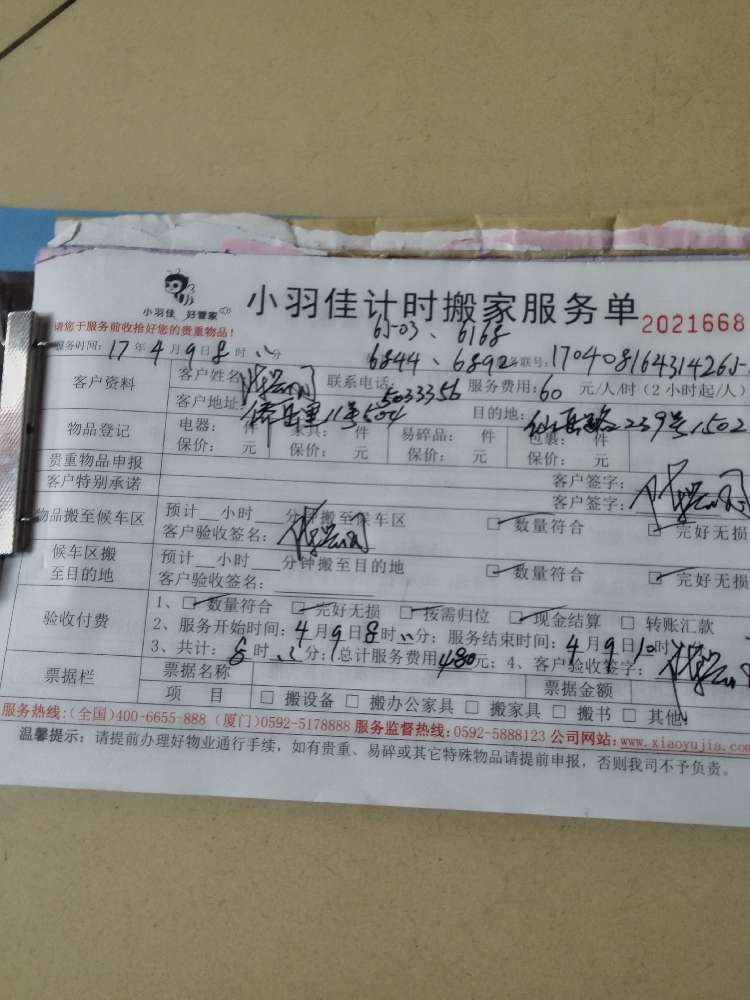 小羽佳 好管家
小羽佳计时搬家服务单 2021668
请您于服务前收拾好您的贵重物品！
65-03、6168
服务时间：17年4月9日8时 分 6844、6892 务联号：
客户资料 客户姓名 联系电话：5033356 服务费用：60 元/人/时（2小时起/人）
客户地址： 11号504 目的地： 239号1502
物品登记 电器： 件 家具： 件 易碎品： 件 包裹： 件
保价： 元 保价： 元 保价： 元 保价： 元
贵重物品申报 客户签字：
客户特别承诺 客户签字：
物品搬至候车区 预计__小时__分钟搬至候车区 □数量符合 □完好无损
客户验收签名：
候车区搬至目的地 预计__小时__分钟搬至目的地 □数量符合 □完好无损
客户验收签名：
验收付费 1、□数量符合 □完好无损 □按需归位 □现金结算 □转账汇款
2、服务开始时间：4月9日8时 分；服务结束时间：4月9日10时
3、共计： 时 分；总计服务费用480元；4、客户验收签字：
票据栏 票据名称 票据金额
项 目 □搬设备 □搬办公家具 □搬家具 □搬书 □其他
服务热线：(全国)400-6655-888 (厦门)0592-5178888 服务监督热线：0592-5888123 公司网站：www.xiaoyujia.com
温馨提示：请提前办理好物业通行手续，如有贵重、易碎或其它特殊物品请提前申报，否则我司不予负责。